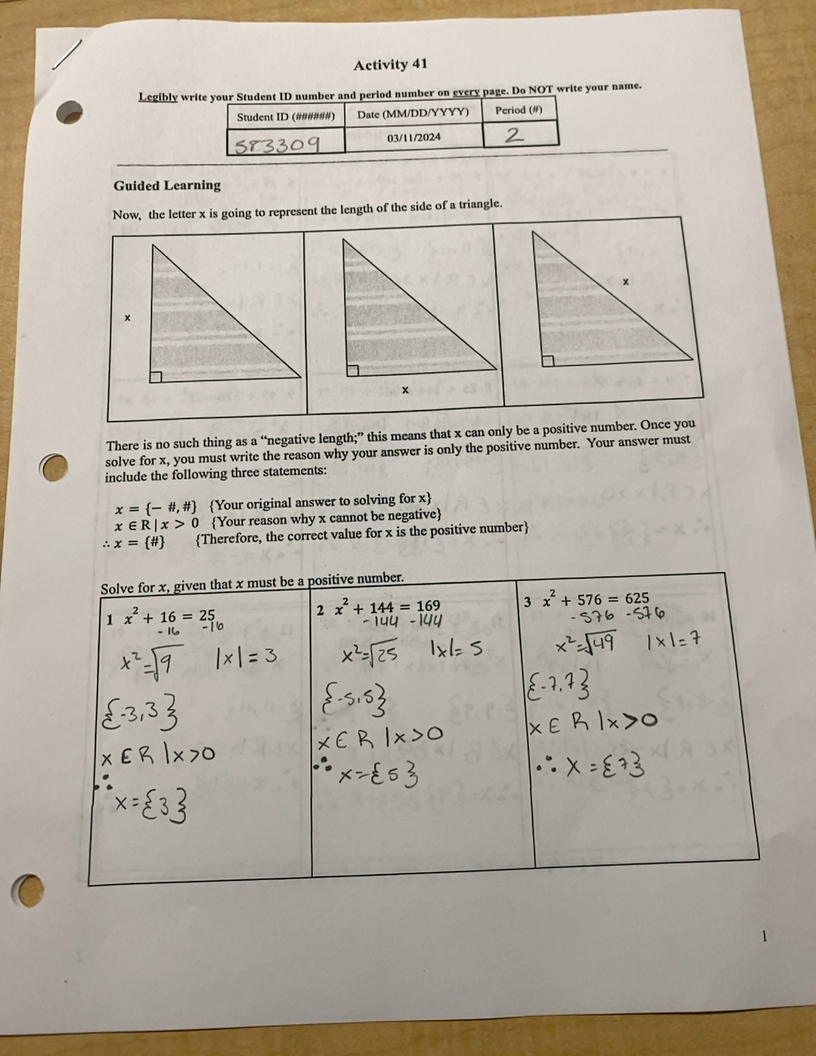 Activity 41
Legibly write your Student ID number and period number on every page. Do NOT write your name.
Student ID (######) Date (MM/DD/YYYY) Period (#)
583309 03/11/2024 2
Guided Learning
Now, the letter x is going to represent the length of the side of a triangle.
x
x
x
There is no such thing as a “negative length;” this means that x can only be a positive number. Once you
solve for x, you must write the reason why your answer is only the positive number. Your answer must
include the following three statements:
x = {− #, #} {Your original answer to solving for x}
x ∈ R | x > 0 {Your reason why x cannot be negative}
∴ x = {#} {Therefore, the correct value for x is the positive number}
Solve for x, given that x must be a positive number.
1 x² + 16 = 25
-16 -16
x²=√9 |x| = 3
{-3,3}
x ∈ R | x>0
∴
x={3}
2 x² + 144 = 169
-144 -144
x²=√25 |x|= 5
{-5,5}
x ∈ R | x>0
∴ x={5}
3 x² + 576 = 625
-576 -576
x²=√49 |x|=7
{-7,7}
x ∈ R | x>0
∴ x={7}
1